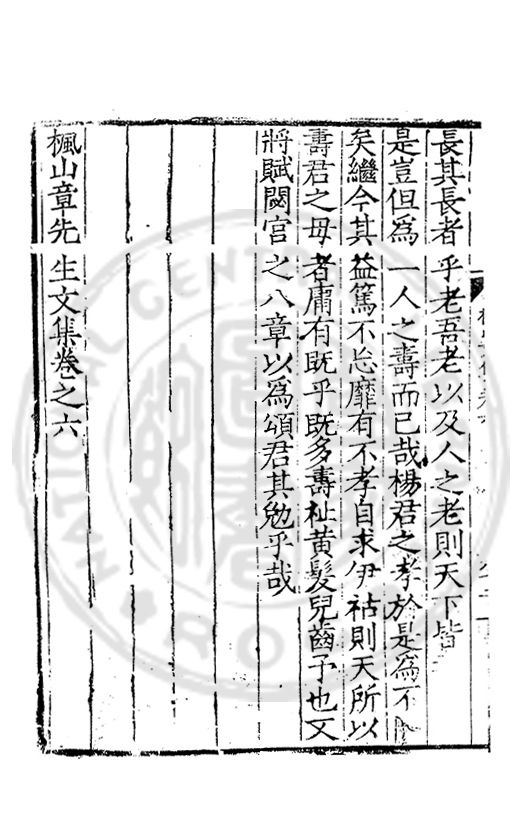 長其長者乎老吾老以及人之老則天下皆
是豈但為一人之壽而已哉楊君之孝於是為不
矣繼今其益篤不怂靡有不孝自求伊祜則天所以
壽君之母者庸有既乎既多壽祉黃髮兒齒予也又
將賦閟宮之八章以為頌君其勉乎哉
楓山章先生文集卷之六
NATIONAL CENTRAL